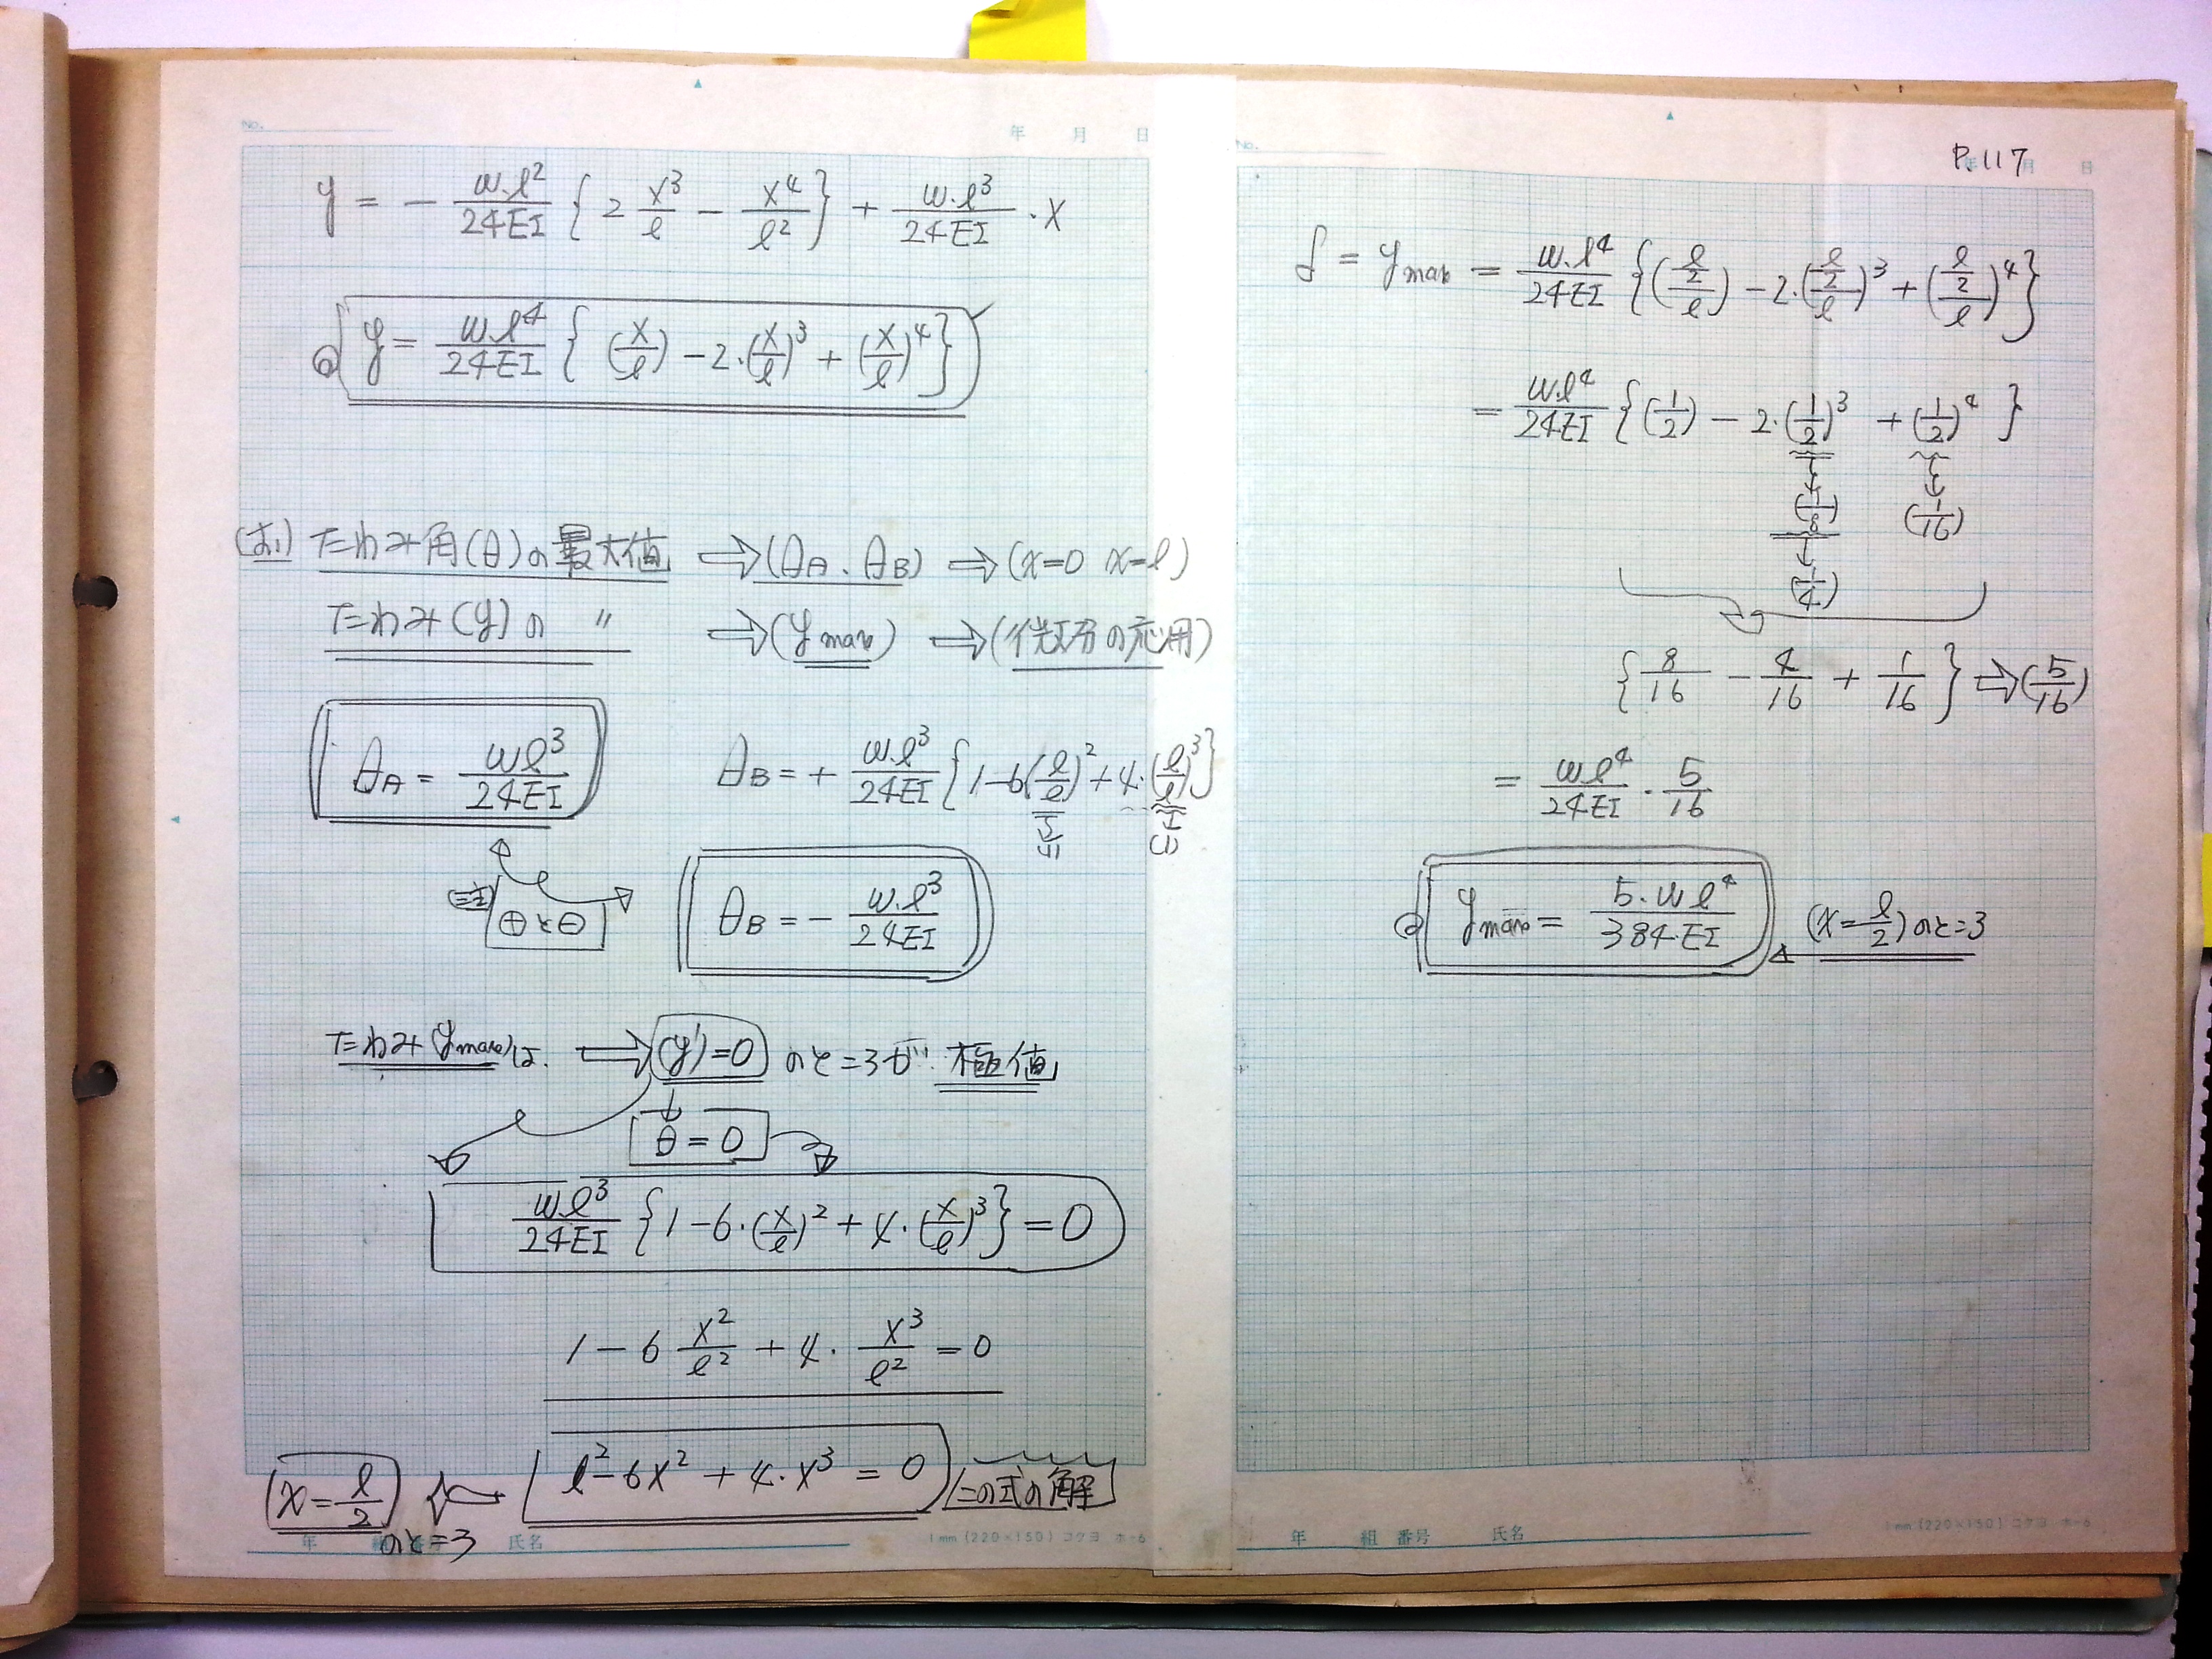 No.
年 月 日
y = - w·l²/24EI { 2 x³/l - x⁴/l² } + w·l³/24EI · x
y = w·l⁴/24EI { (x/l) - 2·(x/l)³ + (x/l)⁴ }
(注) たわみ角(θ)の最大値 ⇒ (θA、θB) ⇒ (x=0 x=l)
たわみ(y)の 〃 ⇒ (y max) ⇒ (微分の応用)
θA = wl³/24EI
θB = + w·l³/24EI { 1 - 6(l/l)² + 4·(l/l)³ }
(1) (1)
(注) ⊕と⊖
θB = - w·l³/24EI
たわみ(y max)は、 ⇒ (y')=0 のときが、極値
θ = 0
w·l³/24EI { 1 - 6·(x/l)² + 4·(x/l)³ } = 0
1 - 6 x²/l² + 4· x³/l² = 0
l² - 6x² + 4·x³ = 0 この式の解
x = l/2 のとき
年 組 番号 氏名
1mm (220×150) コクヨ ホ-6
No.
年 月 日
P.117
δ = y max = w·l⁴/24EI { (l/2/l) - 2·(l/2/l)³ + (l/2/l)⁴ }
= w·l⁴/24EI { (1/2) - 2·(1/2)³ + (1/2)⁴ }
(1/8) (1/16)
(1/4)
{ 8/16 - 4/16 + 1/16 } ⇒ (5/16)
= wl⁴/24EI · 5/16
y max = 5·wl⁴/384·EI (x = l/2) のとき
年 組 番号 氏名
1mm (220×150) コクヨ ホ-6